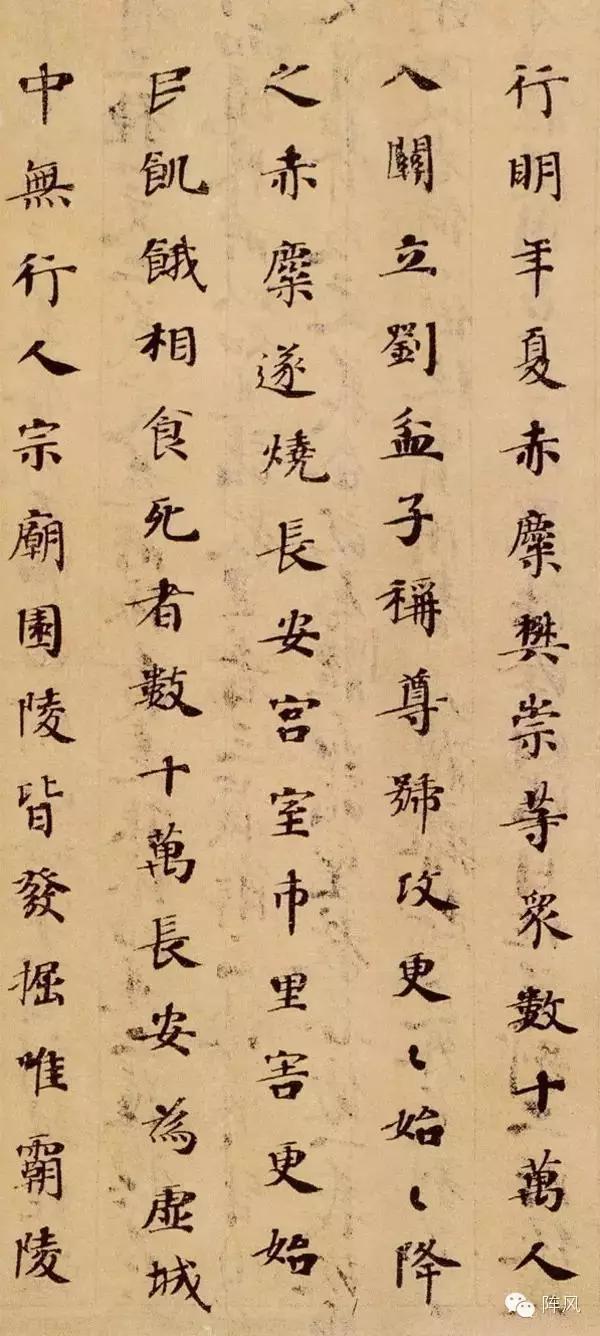 行明年夏赤糜樊崇等衆數十萬人
入關立劉盆子稱尊號攻更〻始〻降
之赤糜遂燒長安宮室市里害更始
民飢餓相食死者數十萬長安為虛城
中無行人宗廟園陵皆發掘唯霸陵
阵风